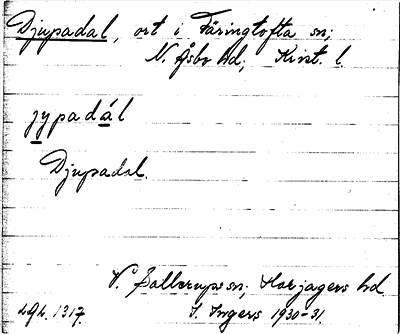 Djupadal, ort i Färingtofta sn;
N. Åsbo hd, Krist. l.
jypadál
Djupadal.
V. Sallerups sn; Harjagers hd
LGL. 1317. I. Ingers 1930-31